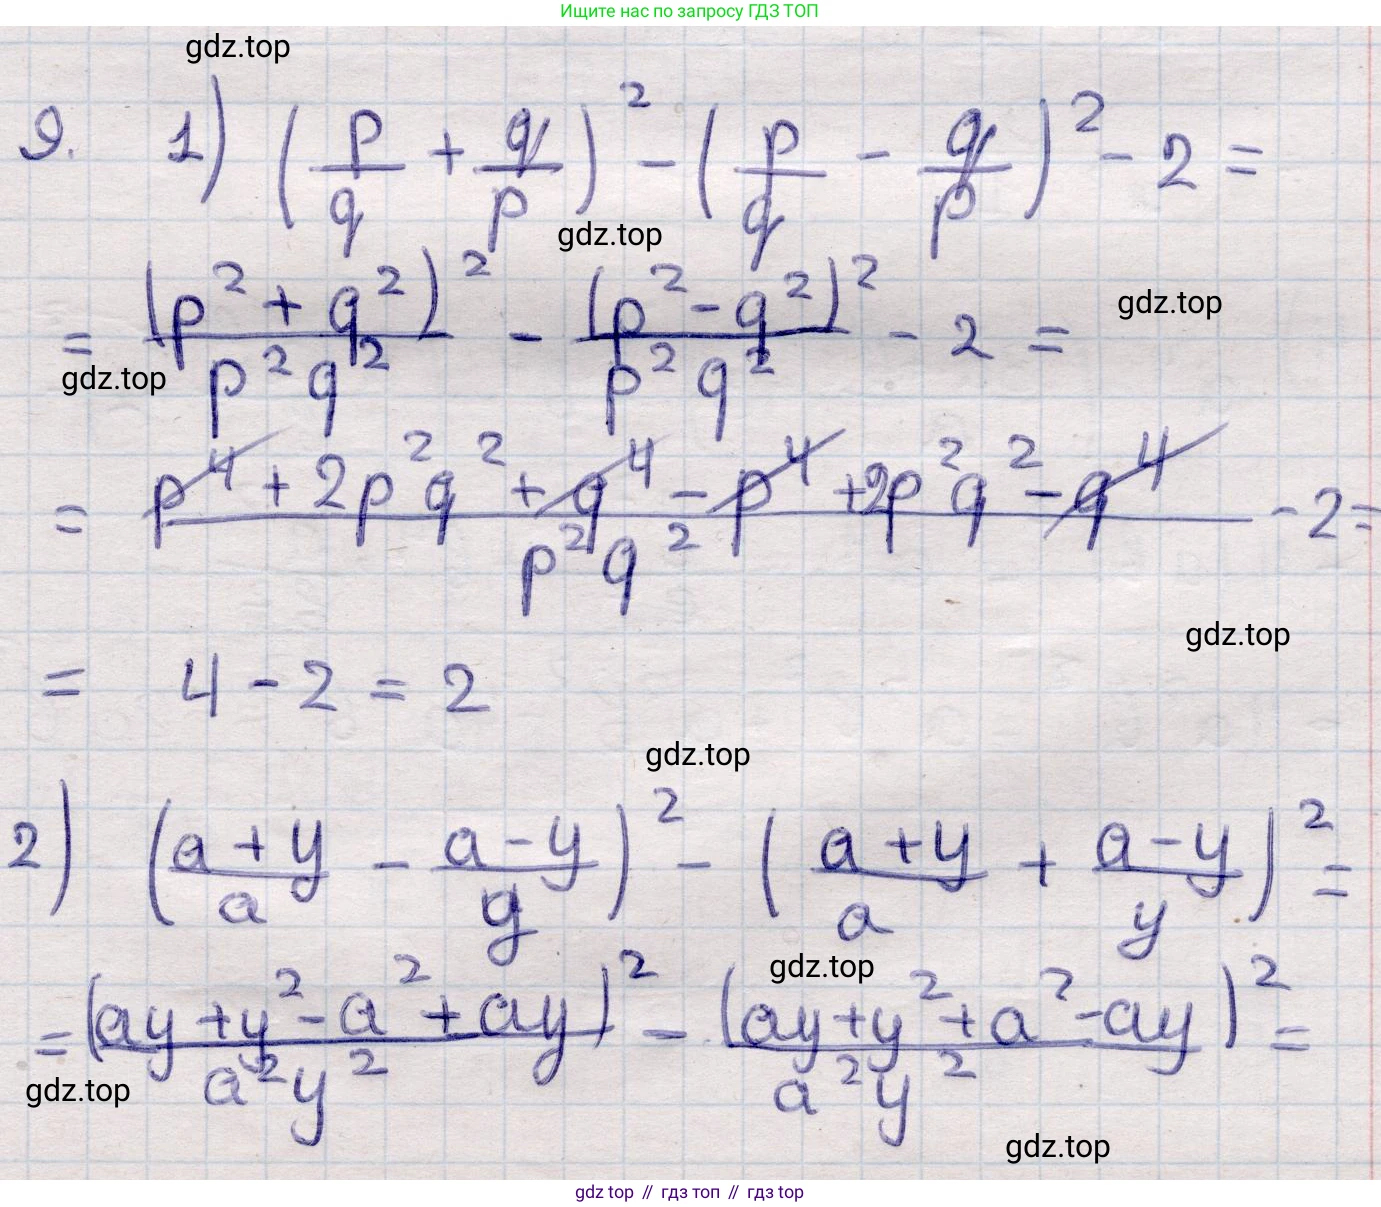 Ищите нас по запросу ГДЗ ТОП
gdz.top
9. 1) (p/q + q/p)² - (p/q - q/p)² - 2 =
gdz.top
= (p² + q²)²/p²q² - (p² - q²)²/p²q² - 2 =
gdz.top
gdz.top
= (p⁴ + 2p²q² + q⁴ - p⁴ + 2p²q² - q⁴)/p²q² - 2 =
gdz.top
= 4 - 2 = 2
gdz.top
2) ((a + y)/a - (a - y)/y)² - ((a + y)/a + (a - y)/y)² =
gdz.top
= (ay + y² - a² + ay)²/a²y² - (ay + y² + a² - ay)²/a²y² =
gdz.top
gdz.top
gdz top // гдз топ // gdz top